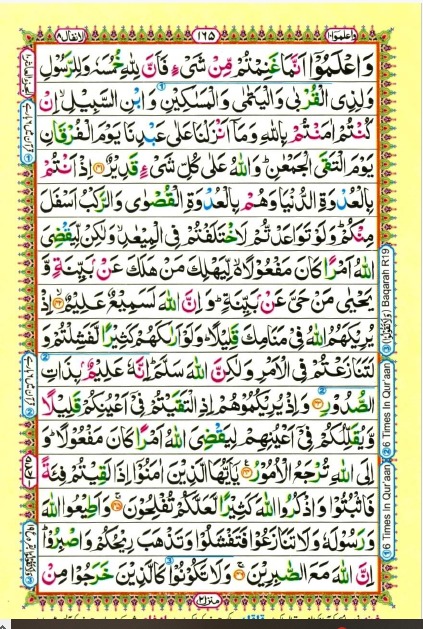 واعلموا ١٠
١٦٥
الانفال ٨
وَاعْلَمُوْۤا اَنَّمَا غَنِمْتُمْ مِّنْ شَیْءٍ فَاَنَّ لِلّٰهِ خُمُسَهٗ وَلِلرَّسُوْلِ
وَلِذِی الْقُرْبٰی وَالْیَتٰمٰی وَالْمَسٰكِیْنِ وَابْنِ السَّبِیْلِ ۙ اِنْ
كُنْتُمْ اٰمَنْتُمْ بِاللّٰهِ وَمَاۤ اَنْزَلْنَا عَلٰی عَبْدِنَا یَوْمَ الْفُرْقَانِ
یَوْمَ الْتَقَی الْجَمْعٰنِ ؕ وَاللّٰهُ عَلٰی كُلِّ شَیْءٍ قَدِیْرٌ ۝۴۱ اِذْ اَنْتُمْ
بِالْعُدْوَةِ الدُّنْیَا وَهُمْ بِالْعُدْوَةِ الْقُصْوٰی وَالرَّكْبُ اَسْفَلَ
مِنْكُمْ ؕ وَلَوْ تَوَاعَدْتُّمْ لَاخْتَلَفْتُمْ فِی الْمِیْعٰدِ ۙ وَلٰكِنْ لِّیَقْضِیَ
اللّٰهُ اَمْرًا كَانَ مَفْعُوْلًا ۙ لِّیَهْلِكَ مَنْ هَلَكَ عَنْۢ بَیِّنَةٍ وَّ
یَحْیٰی مَنْ حَیَّ عَنْۢ بَیِّنَةٍ ؕ وَاِنَّ اللّٰهَ لَسَمِیْعٌ عَلِیْمٌ ۝۴۲ اِذْ
یُرِیْكَهُمُ اللّٰهُ فِیْ مَنَامِكَ قَلِیْلًا ؕ وَلَوْ اَرٰىكَهُمْ كَثِیْرًا لَّفَشِلْتُمْ وَ
لَتَنَازَعْتُمْ فِی الْاَمْرِ وَلٰكِنَّ اللّٰهَ سَلَّمَ ؕ اِنَّهٗ عَلِیْمٌۢ بِذَاتِ
الصُّدُوْرِ ۝۴۳ وَاِذْ یُرِیْكُمُوْهُمْ اِذِ الْتَقَیْتُمْ فِیْۤ اَعْیُنِكُمْ قَلِیْلًا
وَّیُقَلِّلُكُمْ فِیْۤ اَعْیُنِهِمْ لِیَقْضِیَ اللّٰهُ اَمْرًا كَانَ مَفْعُوْلًا ؕ وَ
اِلَی اللّٰهِ تُرْجَعُ الْاُمُوْرُ ۝۴۴ یٰۤاَیُّهَا الَّذِیْنَ اٰمَنُوْۤا اِذَا لَقِیْتُمْ فِئَةً
فَاثْبُتُوْا وَاذْكُرُوا اللّٰهَ كَثِیْرًا لَّعَلَّكُمْ تُفْلِحُوْنَ ۝۴۵ وَاَطِیْعُوا اللّٰهَ
وَرَسُوْلَهٗ وَلَا تَنَازَعُوْا فَتَفْشَلُوْا وَتَذْهَبَ رِیْحُكُمْ وَاصْبِرُوْا ؕ
اِنَّ اللّٰهَ مَعَ الصّٰبِرِیْنَ ۝۴۶ وَلَا تَكُوْنُوْا كَالَّذِیْنَ خَرَجُوْا مِنْ
منزل ٢
① 6 Times In Qur'aan ② 6 Times In Qur'aan ③ Baqarah R19